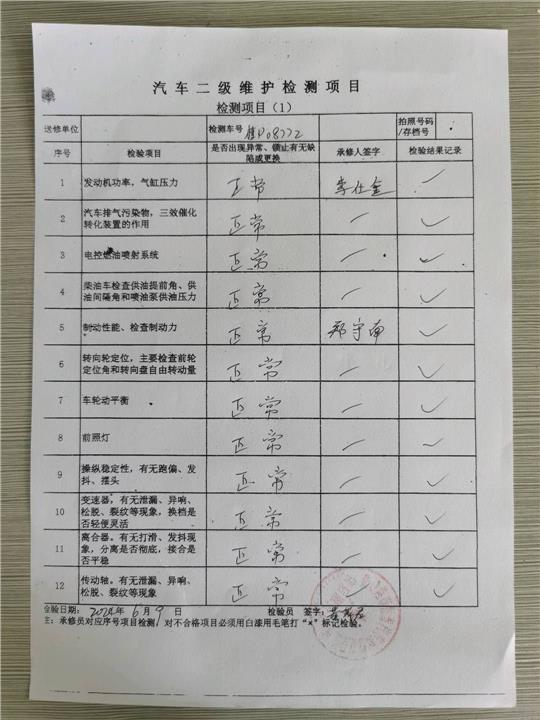 汽车二级维护检测项目
检测项目（1）
送修单位 检测车号 桂P08772 拍照号码/存档号
序号 检验项目 是否出现异常、锁止有无缺陷或更换 承修人签字 检验结果记录
1 发动机功率，气缸压力 正常 李仕金 ✓
2 汽车排气污染物，三效催化转化装置的作用 正常 ✓
3 电控燃油喷射系统 正常 ✓
4 柴油车检查供油提前角、供油间隔角和喷油泵供油压力 正常 ✓
5 制动性能、检查制动力 正常 郑守南 ✓
6 转向轮定位，主要检查前轮定位角和转向盘自由转动量 正常 ✓
7 车轮动平衡 正常 ✓
8 前照灯 正常 ✓
9 操纵稳定性，有无跑偏、发抖、摆头 正常 ✓
10 变速器，有无泄漏、异响、松脱、裂纹等现象，换档是否轻便灵活 正常 ✓
11 离合器。有无打滑、发抖现象，分离是否彻底，接合是否平稳 正常 ✓
12 传动轴。有无泄漏、异响、松脱、裂纹等现象 正常 ✓
检验日期：2024年6月9日 检验员 签字：
主：承修员对应序号项目检测，对不合格项目必须用白漆用毛笔打“×”标记检验。